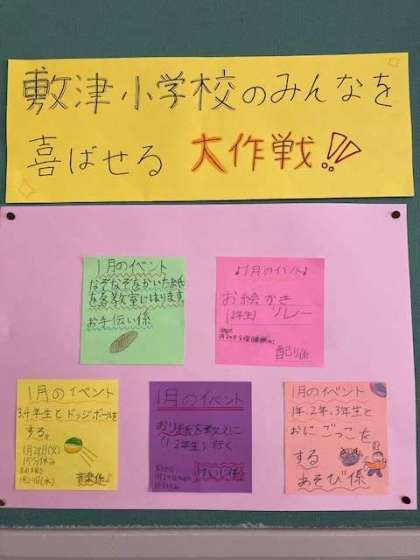 敷津小学校のみんなを
喜ばせる 大作戦!!
1月のイベント
なぞなぞをかいた紙
を各教室にはります
お手伝い係
♪1月のイベント♪
お絵かき
(2年生) リレー
配り係
1月のイベント
3,4年生とドッジボールを
する。
音楽係♪
1月のイベント
おり紙を教えに
(1,2年生) 行く
けいじ係
1月のイベント
1年、2年、3年生と
おにごっこを
する
あそび係